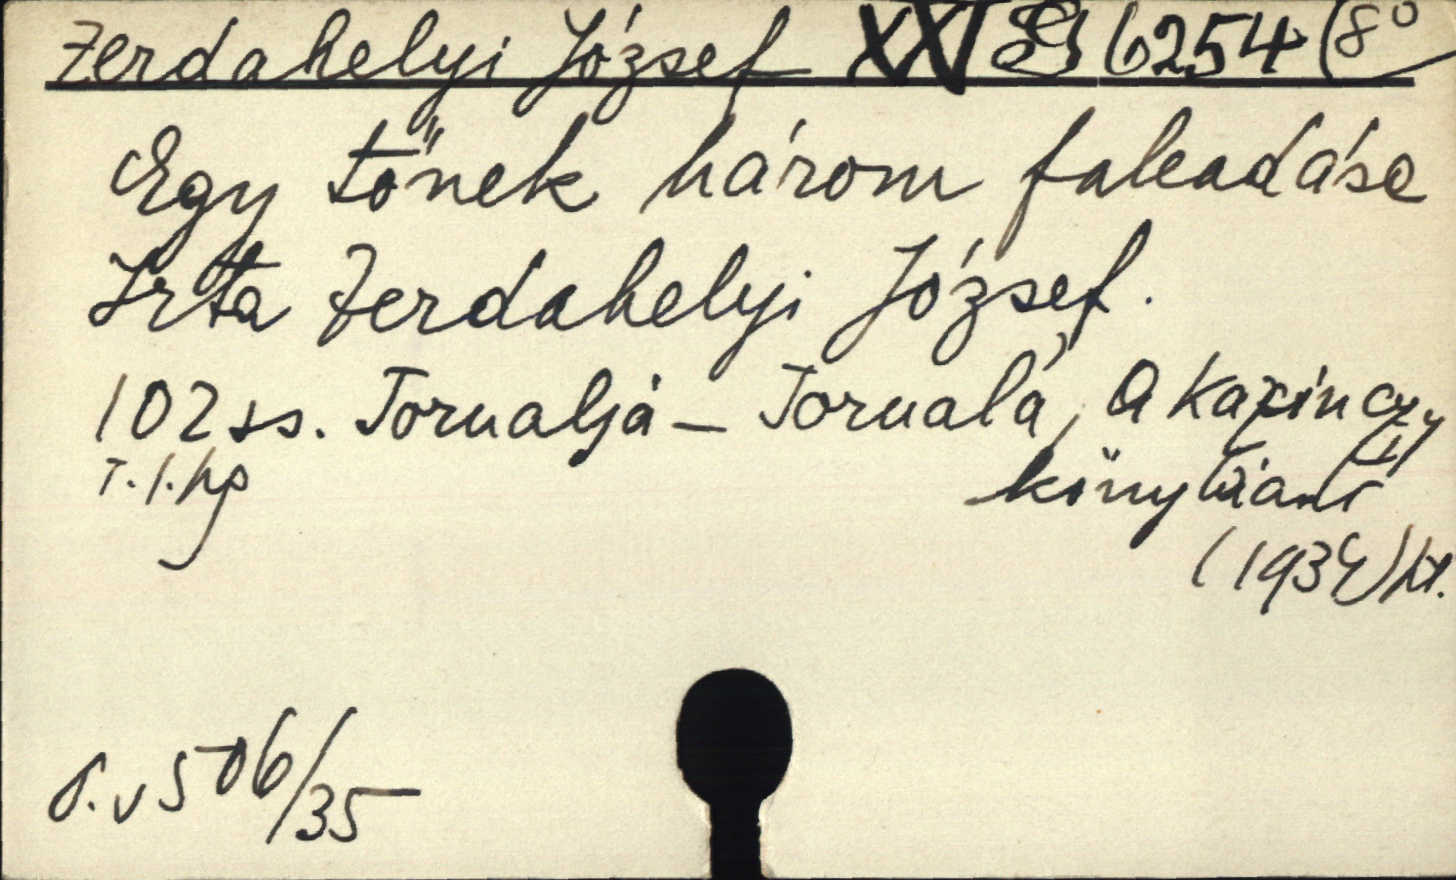 Zerdahelyi József XXI B 6254 (8°
Egy tőnek három fakadása
Irta Zerdahelyi József.
102 ss. Tornaljá - Tornalá, A Kazinczy
T. l. kp könytári
(1934) kt.
506/35